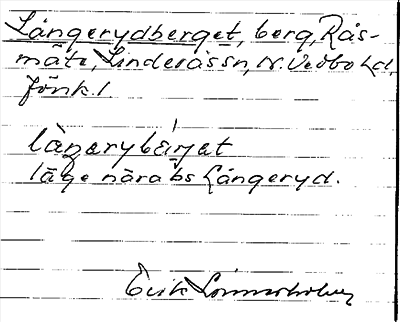 Långerydberget, berg, Rås-
måla, Linderåssn, N. Vedbo hd,
Jönk. l.
làŋerybærjet
läge nära bs Långeryd.
Erik